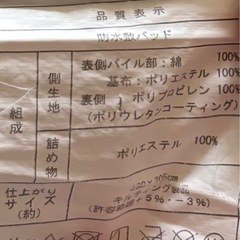 品質表示
防水敷パッド
組成
側生地
表側パイル部：綿 100%
基布：ポリエステル 100%
裏側 ポリプロピレン 100%
(ポリウレタンコーティング)
詰め物
ポリエステル 100%
仕上がり
サイズ
(約)
キルティング製品
+5%・-3%)